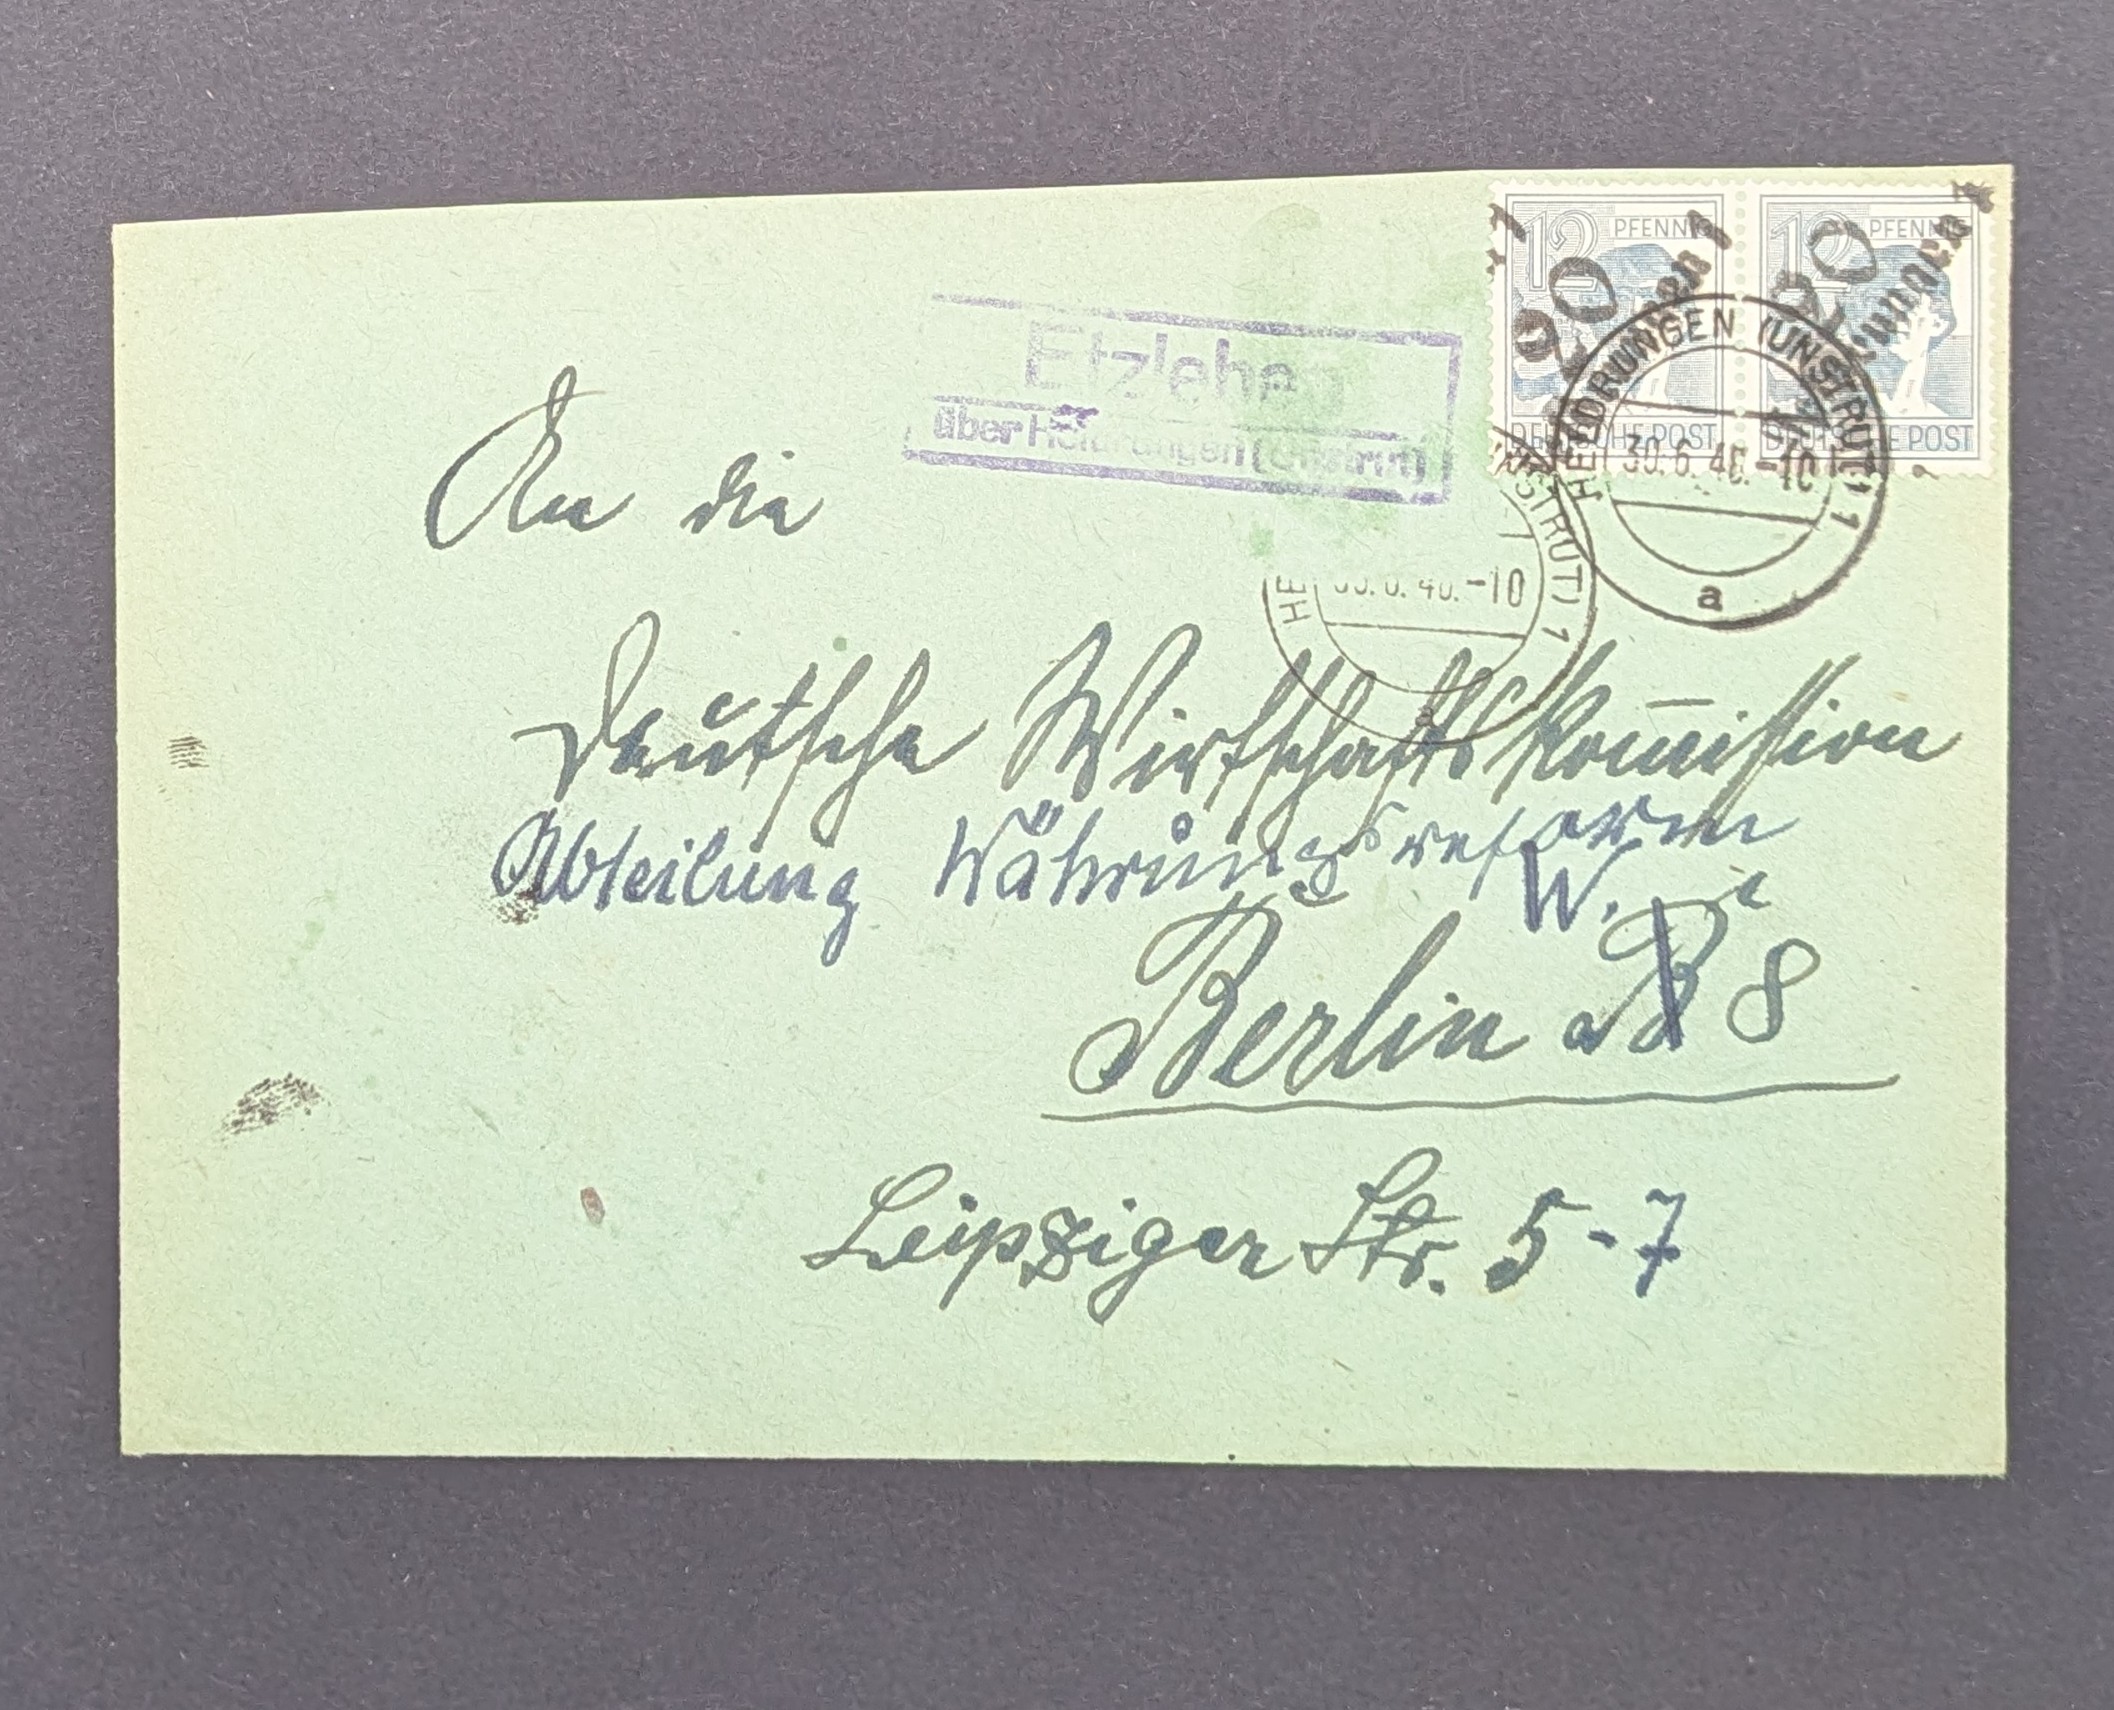 12 PFENNIG 12 PFENNIG
20 20
DEUTSCHE POST DEUTSCHE POST
HELDRUNGEN (UNSTRUT) 1
30.6.48.-10
a
-10
STRUT) 1
a
Etzleben
über Heldrungen (Unstrut)
An die
Deutsche Wirtschaftskom̅ission
Abteilung Währungsreform
W.
Berlin 8
Leipziger Str. 5-7